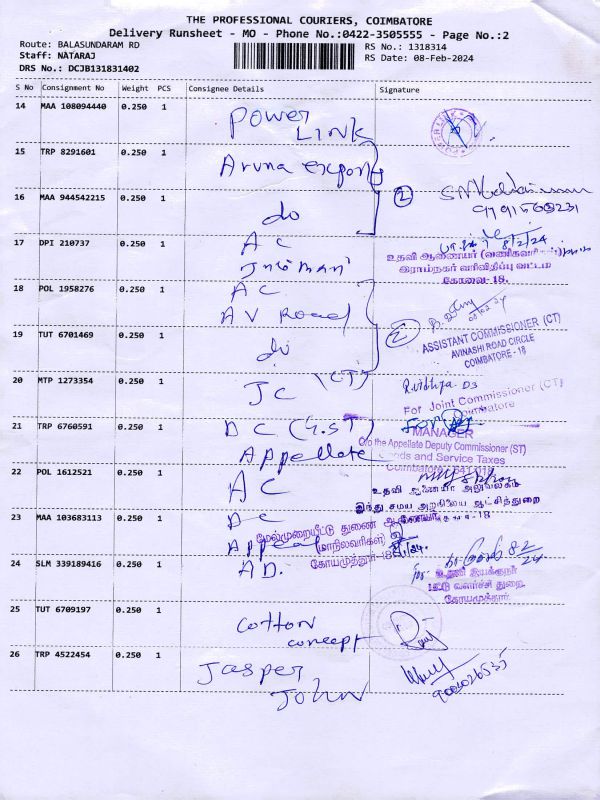 THE PROFESSIONAL COURIERS, COIMBATORE
Delivery Runsheet - MO - Phone No.:0422-3505555 - Page No.:2
Route: BALASUNDARAM RD
RS No.: 1318314
Staff: NATARAJ
RS Date: 08-Feb-2024
DRS No.: DCJB131831402
S No Consignment No Weight PCS Consignee Details Signature
14 MAA 108094440 0.250 1 Power Link
15 TRP 8291601 0.250 1 Aruna export
16 MAA 944542215 0.250 1 do
2
17 DPI 210737 0.250 1 AC
8/2/24
உதவி ஆணையர் (வணிகவரி)
இராம்நகர் வரிவிதிப்பு வட்டம்
கோவை-18.
18 POL 1958276 0.250 1 AC
AV Road
19 TUT 6701469 0.250 1 do
2
ASSISTANT COMMISSIONER (CT)
AVINASHI ROAD CIRCLE
COIMBATORE - 18
20 MTP 1273354 0.250 1 JC (CT)
For Joint Commissioner (CT)
Coimbatore
21 TRP 6760591 0.250 1 DC (GST)
Appellate
For
MANAGER
O/o the Appellate Deputy Commissioner (ST)
Goods and Service Taxes
Coimbatore - 641 018
22 POL 1612521 0.250 1 AC
உதவி ஆணையர் அலுவலகம்
இந்து சமய அறநிலைய ஆட்சித்துறை
23 MAA 103683113 0.250 1 DC
Appeal
மேல்முறையீட்டு துணை ஆணையர்
(மாநிலவரிகள்)
கோயமுத்தூர்-18
24 SLM 339189416 0.250 1 AD.
8/2/24
உதவி இயக்குநர்
கோயமுத்தூர்
25 TUT 6709197 0.250 1 Cotton concept
26 TRP 4522454 0.250 1 Jasper John